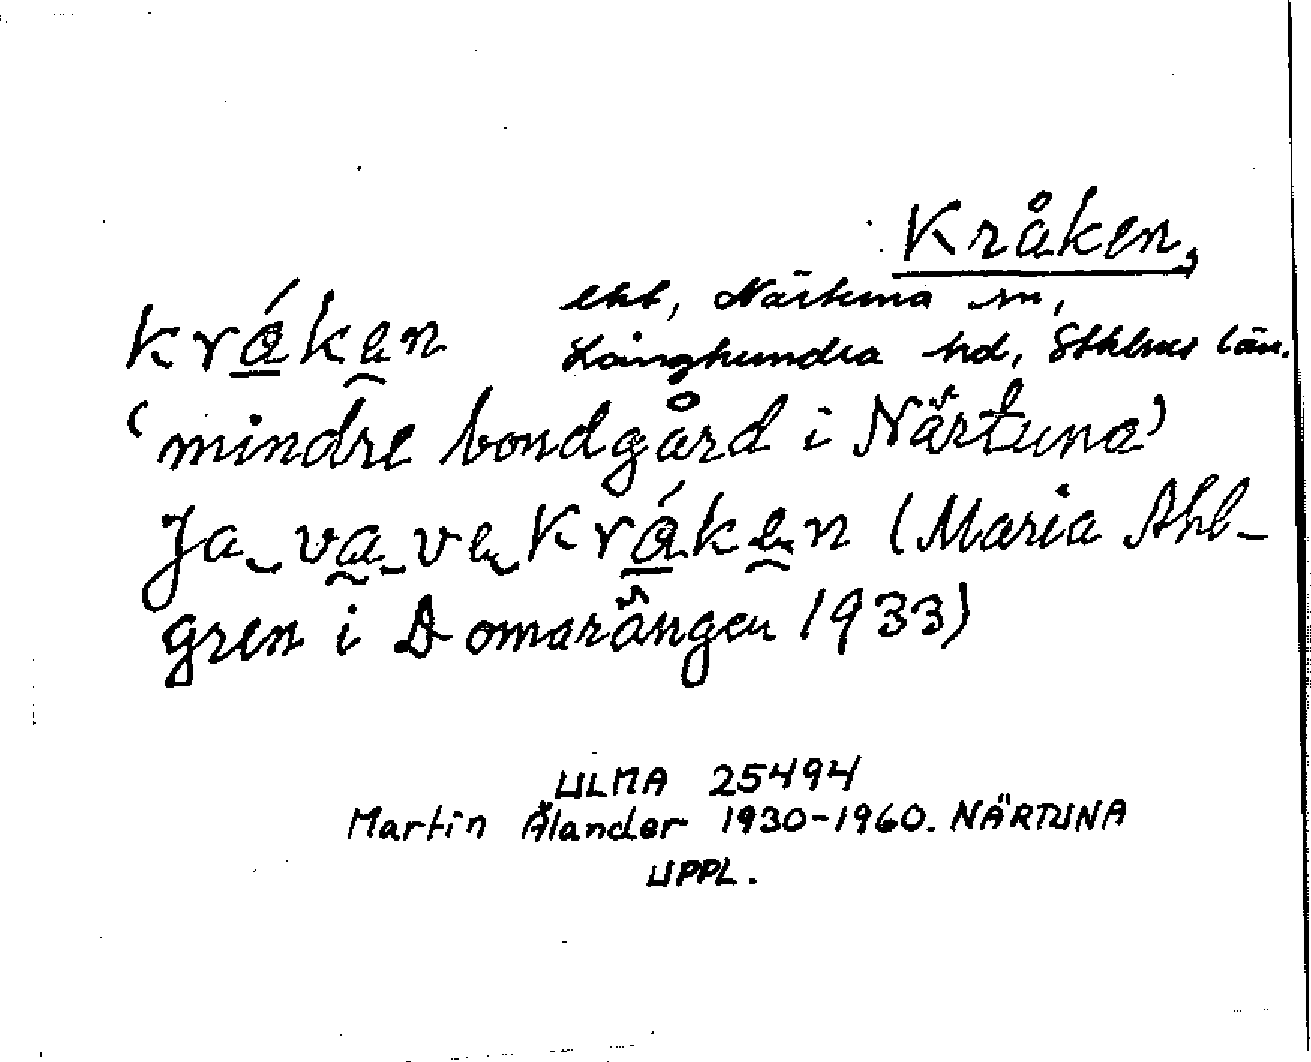 Kråken,
ehb, Närtuna sn,
kráken Långhundra hd, Sthlms län.
‘mindre bondgård i Närtuna’
Ja va ve Kráken (Maria Ahl-
gren i Domarängen 1933)
ULMA 25494
Martin Ålander 1930-1960. NÄRTUNA
UPPL.